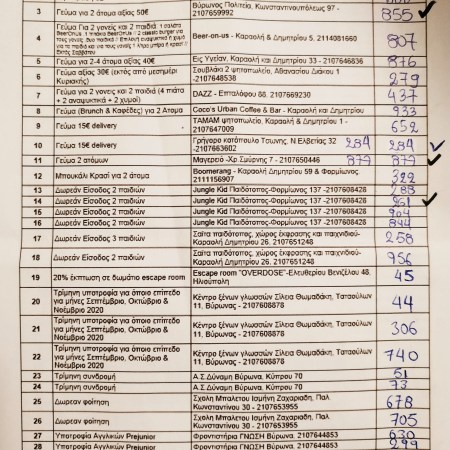 3 Γεύμα για 2 άτομα αξίας 50€ Βύρωνος Πολιτεία, Κωνσταντινουπόλεως 97 - 2107659992 855 ✓
4 Γεύμα Για 2 γονείς και 2 παιδιά Beer-on-us - Καραολή & Δημητρίου 5, 2114081660 807
5 Γεύμα για 2-4 άτομα αξίας 40€ Εις Υγείαν, Καραολή και Δημητρίου 33 - 2107646836 876
6 Γεύμα αξίας 30€ (εκτός από μεσημέρι Κυριακής) Σουβλάκι 2 ψητοπωλείο, Αθανασίου Διάκου 1 - 2107648538 279
7 Γεύμα για 2 γονεις και 2 παιδιά (4 πιάτα + 2 αναψυκτικά + 2 χυμοί) DAZZ - Επταλόφου 88, 2107669230 437
8 Γεύμα (Brunch & Καφέδες) για 2 Άτομα Coco's Urban Coffee & Bar - Καραολή και Δημητρίου 933
9 Γεύμα 15€ delivery ΤΑΜΑΜ ψητοπωλείο, Καραολή & Δημητρίου 1 - 2107647009 652
10 Γεύμα 15€ delivery Γρήγορο κατόπουλο Τσώνης, Ν.Ελβετίας 32 - 2107663602 284 284 ✓
11 Γεύμα 2 ατόμων Μαγειρειό -Χρ Σμύρνης 7 - 2107650446 877 877 ✓
12 Μπουκάλι Κρασί για 2 άτομα Boomerang - Καραολή Δημητρίου 59 & Φορμίωνος 2111156907 322
13 Δωρεάν Είσοδος 2 παιδιών Jungle Kid Παιδότοπος-Φορμίωνος 137 -2107608428 288
14 Δωρεάν Είσοδος 2 παιδιών Jungle Kid Παιδότοπος-Φορμίωνος 137 -2107608428 261 ✓
15 Δωρεάν Είσοδος 2 παιδιών Jungle Kid Παιδότοπος-Φορμίωνος 137 -2107608428 904
16 Δωρεάν Είσοδος 2 παιδιών Jungle Kid Παιδότοπος-Φορμίωνος 137 -2107608428 844
17 Δωρεάν Είσοδος 3 παιδιών Σαΐτα παιδότοπος, χώρος έκφρασης και παιχνιδιού- Καραολή Δημητρίου 26, 2107651248 258
18 Δωρεάν Είσοδος 2 παιδιών Σαΐτα παιδότοπος, χώρος έκφρασης και παιχνιδιού- Καραολή Δημητρίου 26. 2107651248 956
19 20% έκπτωση σε δωμάτιο escape room Escape room "OVERDOSE"-Ελευθερίου Βενιζέλου 48, Ηλιούπολη 45
20 Τρίμηνη υποτροφία για όποιο επίπεδο για μήνες Σεπτέμβριο, Οκτώβριο & Νοέμβριο 2020 Κέντρο ξένων γλωσσών Σίλεια Θωμαδάκη, Ταταούλων 11, Βύρωνας - 2107608878 44
21 Τρίμηνη υποτροφία για όποιο επίπεδο για μήνες Σεπτέμβριο, Οκτώβριο & Νοέμβριο 2020 Κέντρο ξένων γλωσσών Σίλεια Θωμαδάκη, Ταταούλων 11, Βύρωνας - 2107608878 306
22 Τρίμηνη υποτροφία για όποιο επίπεδο για μήνες Σεπτέμβριο, Οκτώβριο & Νοέμβριο 2020 Κέντρο ξένων γλωσσών Σίλεια Θωμαδάκη, Ταταούλων 11, Βύρωνας - 2107608878 740
23 Τρίμηνη συνδρομή Α.Σ Δύναμη Βύρωνα, Κύπρου 70 51
24 Τρίμηνη συνδρομή Α.Σ Δύναμη Βύρωνα, Κύπρου 70 73
25 Δωρεαν φοίτηση Σχολη Μπαλετου Ισμήνη Ζαχαριαδη, Παλ. Κωνσταντίνου 30 - 2107653955 678
26 Δωρεαν φοίτηση Σχολη Μπαλετου Ισμήνη Ζαχαριαδη, Παλ. Κωνσταντίνου 30 - 2107653955 705
27 Υποτροφία Αγγλικών Prejunior Φροντιστήρια ΓΝΩΣΗ Βύρωνα, 2107644853 630
28 Υποτροφία Αγγλικών Prejunior Φροντιστήρια ΓΝΩΣΗ Βύρωνα, 2107644853 299